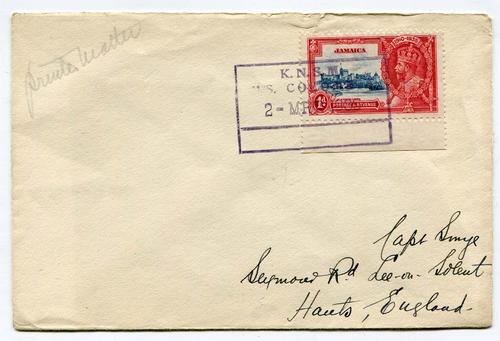 printed matter
JAMAICA
1910-1935
K.N.S.M
S.S. CO
2-MR
1d
POSTAGE & REVENUE
Capt Smye
Seymour Rd Lee-on-Solent
Hants, England.